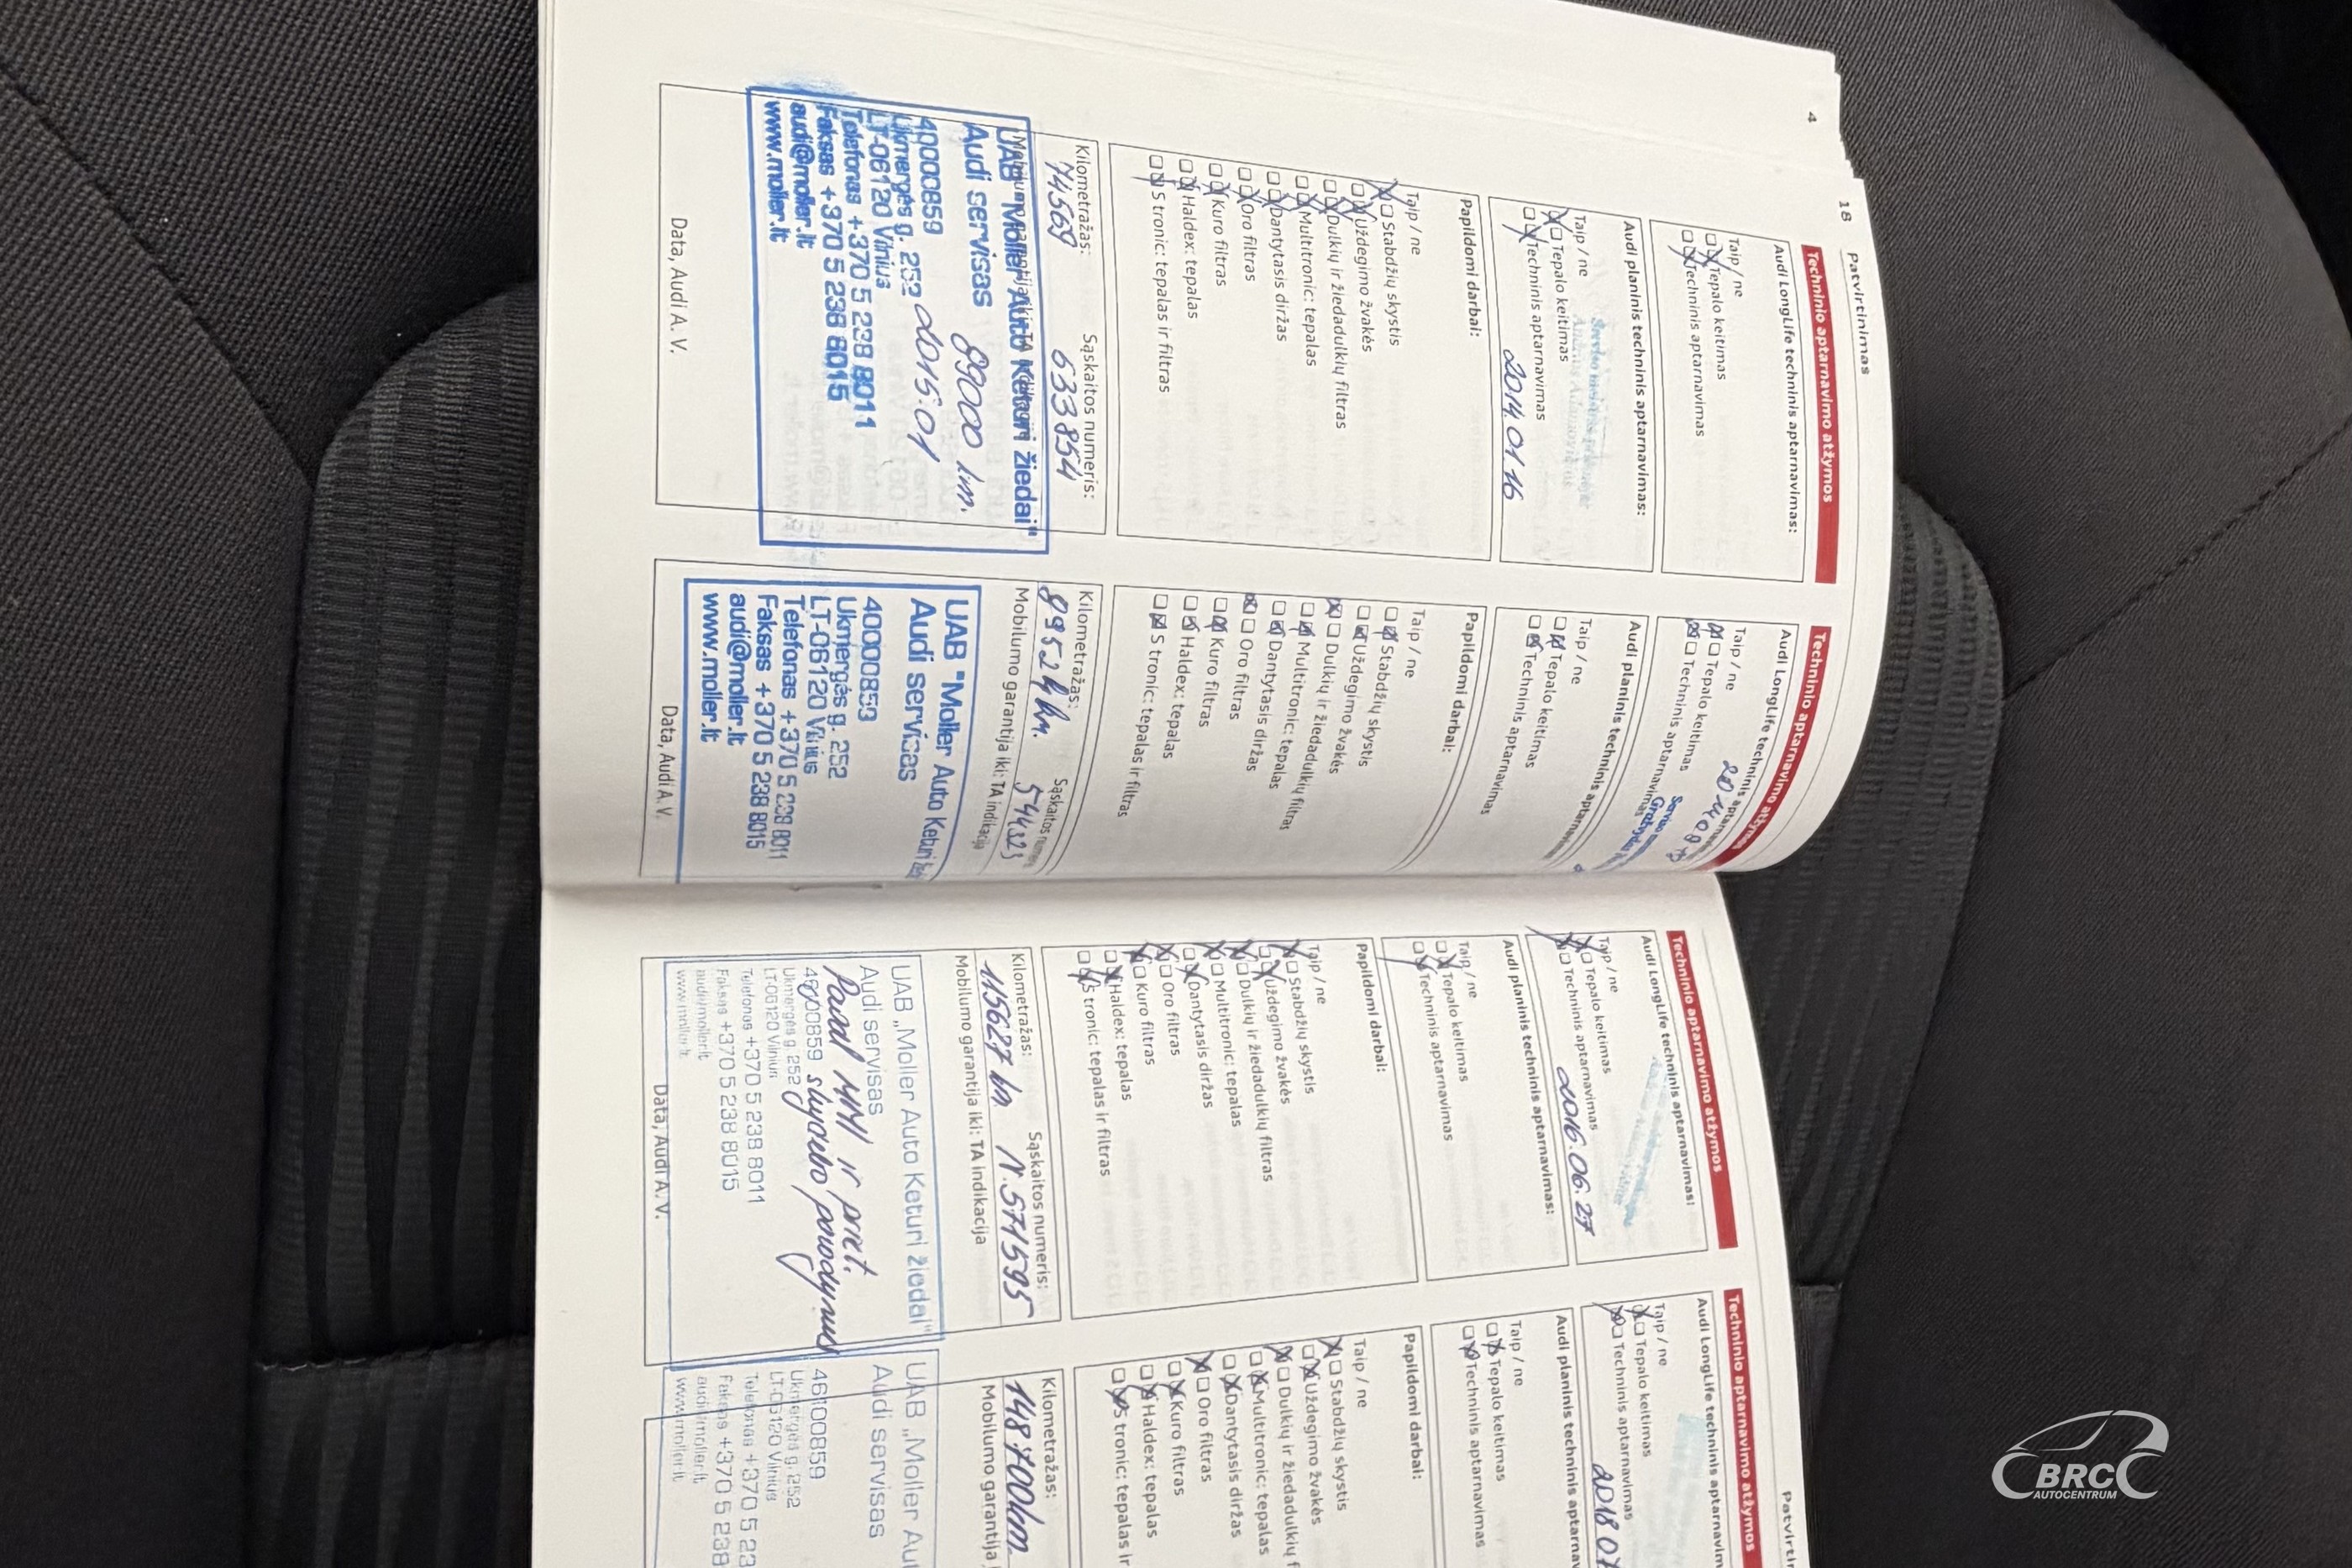 4
18 Patvirtinimas
Techninio aptarnavimo atžymos
Audi LongLife techninis aptarnavimas:
Taip / ne
Tepalo keitimas
Techninis aptarnavimas
Audi planinis techninis aptarnavimas:
Taip / ne
Tepalo keitimas
Techninis aptarnavimas
2014.01.16
Papildomi darbai:
Taip / ne
Stabdžių skystis
Uždegimo žvakės
Dulkių ir žiedadulkių filtras
Multitronic: tepalas
Dantytasis diržas
Oro filtras
Kuro filtras
Haldex: tepalas
S tronic: tepalas ir filtras
Kilometražas: Sąskaitos numeris:
74569 633854
UAB "Moller Auto Keturi žiedai"
Audi servisas
89000 km.
40000859
2015.01
Ukmergės g. 252
LT-06120 Vilnius
Telefonas +370 5 238 8011
Faksas +370 5 238 8015
audi@moller.lt
www.moller.lt
Data, Audi A. V.
Techninio aptarnavimo atžymos
Audi LongLife techninis
Taip / ne
Tepalo keitimas
Techninis aptarnavimas
Audi planinis techninis
Taip / ne
Tepalo keitimas
Techninis aptarnavimas
Papildomi darbai:
Taip / ne
Stabdžių skystis
Uždegimo žvakės
Dulkių ir žiedadulkių filtras
Multitronic: tepalas
Dantytasis diržas
Oro filtras
Kuro filtras
Haldex: tepalas
S tronic: tepalas ir filtras
Kilometražas: Sąskaitos
89524 km.
Mobilumo garantija iki: TA indikacija
UAB "Moller Auto Keturi
Audi servisas
40000859
Ukmergės g. 252
LT-06120 Vilnius
Telefonas +370 5 238 8011
Faksas +370 5 238 8015
audi@moller.lt
www.moller.lt
Data, Audi A. V.
Techninio aptarnavimo atžymos
Audi LongLife techninis aptarnavimas:
Taip / ne
Tepalo keitimas
Techninis aptarnavimas
2016.06.27
Audi planinis techninis aptarnavimas:
Taip / ne
Tepalo keitimas
Techninis aptarnavimas
Papildomi darbai:
Taip / ne
Stabdžių skystis
Uždegimo žvakės
Dulkių ir žiedadulkių filtras
Multitronic: tepalas
Dantytasis diržas
Oro filtras
Kuro filtras
Haldex: tepalas
S tronic: tepalas ir filtras
Kilometražas: Sąskaitos numeris:
115627 km N.571595
Mobilumo garantija iki: TA indikacija
UAB „Moller Auto Keturi žiedai"
Audi servisas
Pagal MMI ir priet.
skydelio parodymus
Ukmergės g. 252
LT-06120 Vilnius
Telefonas +370 5 238 8011
Faksas +370 5 238 8015
audi@moller.lt
www.moller.lt
Data, Audi A. V.
Techninio aptarnavimo atžymos
Audi LongLife techninis
Taip / ne
Tepalo keitimas
Techninis aptarnavimas
Audi planinis techninis
Taip / ne
Tepalo keitimas
Techninis aptarnavimas
Papildomi darbai:
Taip / ne
Stabdžių skystis
Uždegimo žvakės
Dulkių ir žiedadulkių
Multitronic: tepalas
Dantytasis diržas
Oro filtras
Kuro filtras
Haldex: tepalas
S tronic: tepalas
Kilometražas:
148700 km
Mobilumo garantija
UAB „Moller
Audi servisas
46100859
Ukmergės g. 252
LT-06120 Vilnius
Telefonas +370 5
Faksas +370 5 238
audi@moller.lt
www.moller.lt
BRC
AUTOCENTRUM